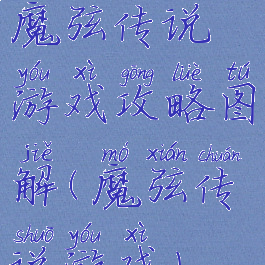 魔弦传说
yóu xì gōng lüè tú
游戏攻略图
jiě mó xián chuán
解(魔弦传
shuō yóu xì
说游戏)